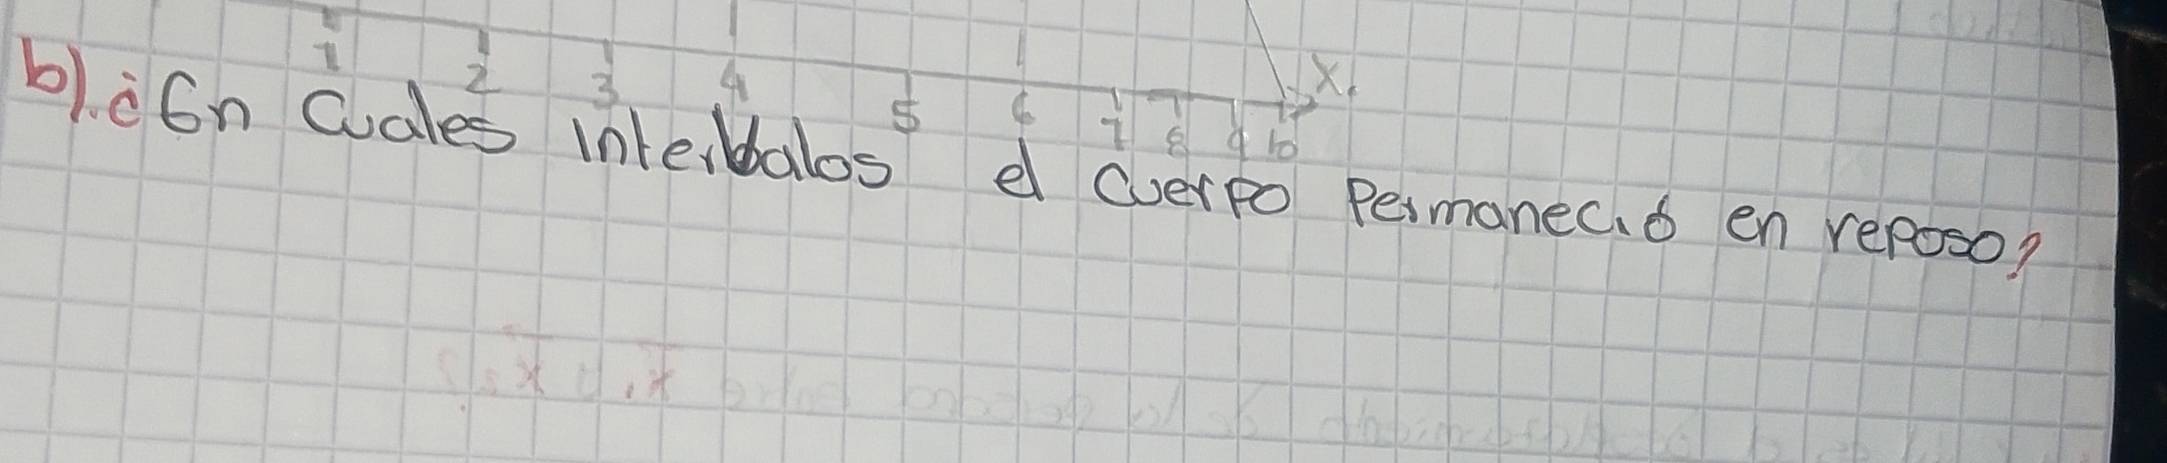 1 2 3 4 5 6 7 8 9 10 X
b). ¿En Cuales interbalos el Cuerpo Permaneció en reposo?